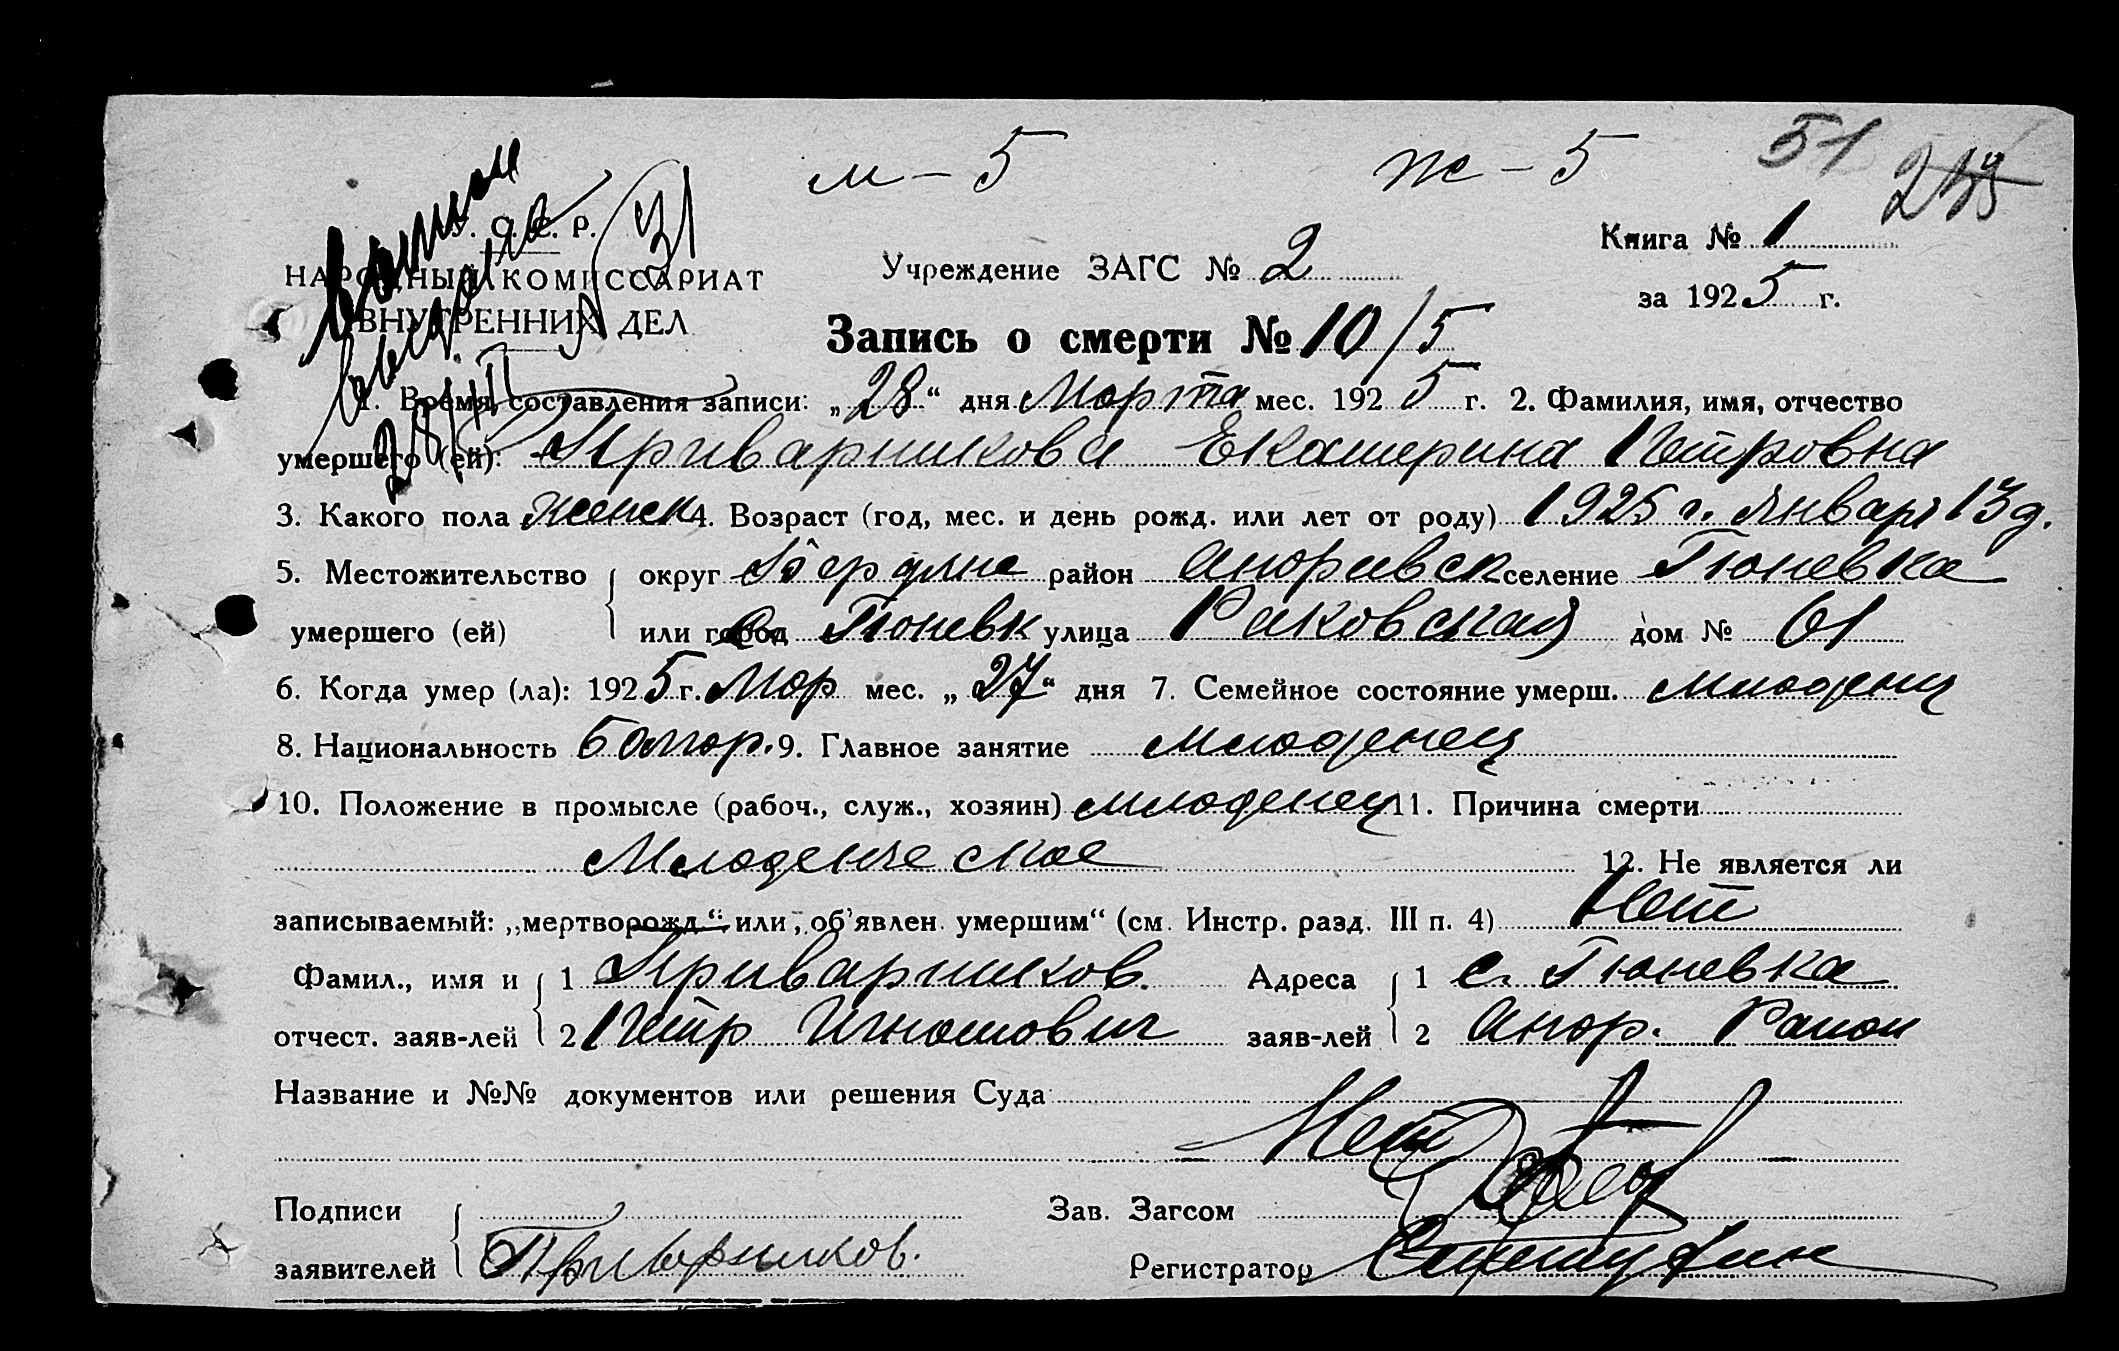 м – 5 ж – 5 51
У. С. С. Р.
НАРОДНЫЙ КОМИССАРИАТ
ВНУТРЕННИХ ДЕЛ
Учреждение ЗАГС № 2
Книга № 1
за 1925 г.
Запись о смерти № 10/5
1. Время составления записи: „28“ дня Марта мес. 1925 г. 2. Фамилия, имя, отчество
умершего (ей): Приварникова Екатерина Петровна
3. Какого пола женск 4. Возраст (год, мес. и день рожд. или лет от роду) 1925 г. Января 13 д.
5. Местожительство округ Бердянс район Андривск селение Гюневка
умершего (ей) или город с. Гюневк улица Раковская дом № 61
6. Когда умер (ла): 1925 г. Мар мес. „27“ дня 7. Семейное состояние умерш. младенец
8. Национальность Болгар. 9. Главное занятие младенец
10. Положение в промысле (рабоч., служ., хозяин) младенец 11. Причина смерти
Младенческое 12. Не является ли
записываемый: „мертворожд.“ или „об'явлен умершим“ (см. Инстр. разд. III п. 4) Нет
Фамил., имя и 1 Приварников. Адреса 1 с. Гюневка
отчест. заяв-лей 2 Петр Игнатович заяв-лей 2 Андр. Район
Название и №№ документов или решения Суда
Нет
Подписи Зав. Загсом
заявителей Приварников. Регистратор